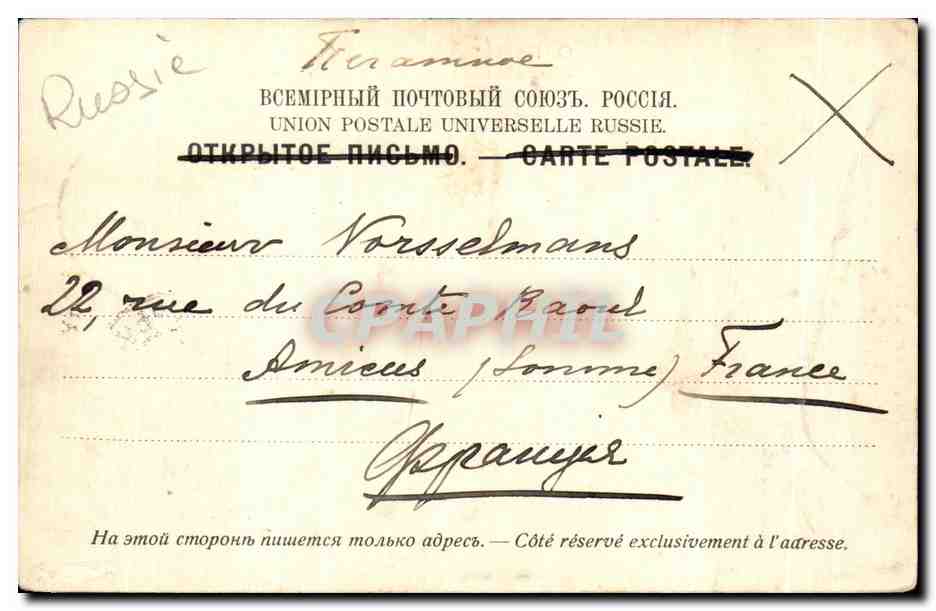 Печатное
Russie
ВСЕМІРНЫЙ ПОЧТОВЫЙ СОЮЗЪ. РОССІЯ.
UNION POSTALE UNIVERSELLE RUSSIE.
ОТКРЫТОЕ ПИСЬМО. — CARTE POSTALE.
Monsieur Vorsselmans
22, rue du Comte Raoul
Amiens (Somme) France
Франція
CPAPHIL
На этой сторонѣ пишется только адресъ. — Côté réservé exclusivement à l'adresse.